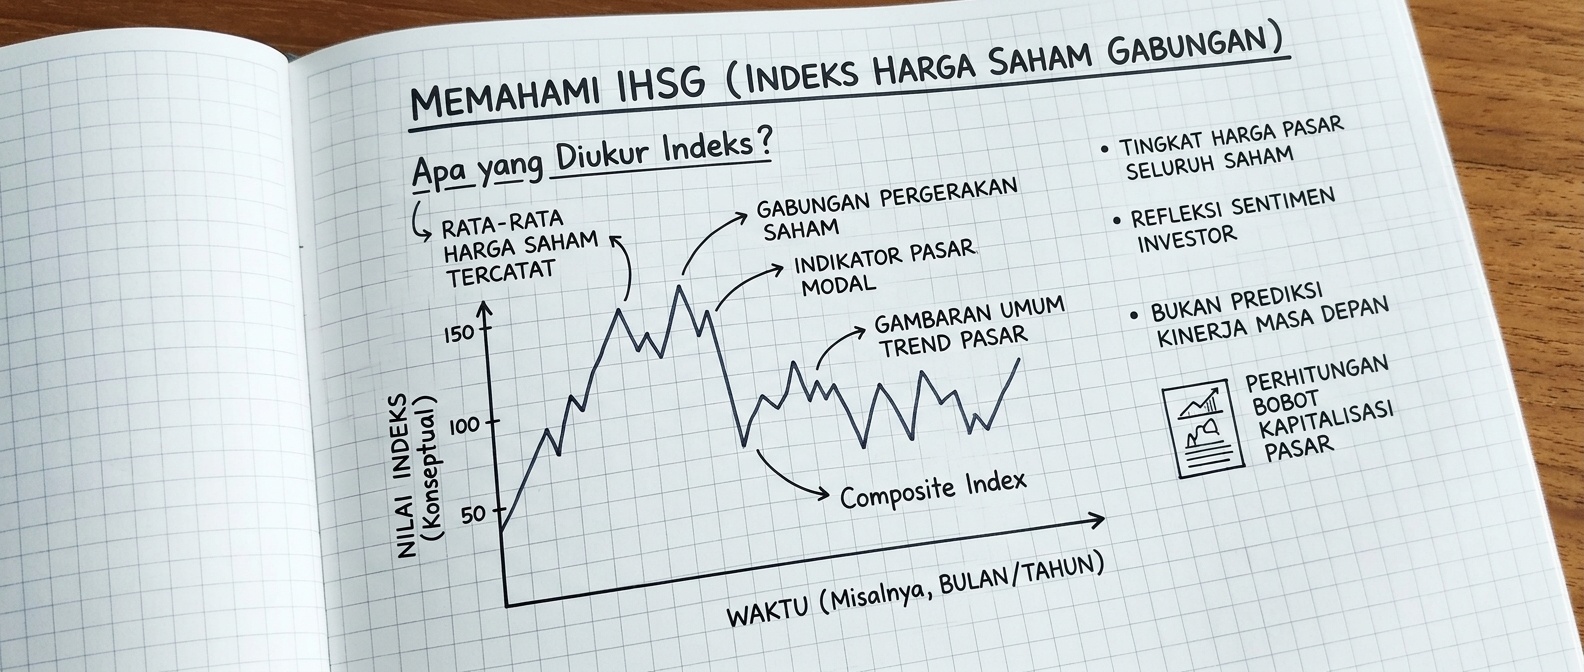 MEMAHAMI IHSG (INDEKS HARGA SAHAM GABUNGAN)
Apa yang Diukur Indeks?
RATA-RATA
HARGA SAHAM
TERCATAT
GABUNGAN PERGERAKAN
SAHAM
INDIKATOR PASAR
MODAL
GAMBARAN UMUM
TREND PASAR
Composite Index
150
100
50
NILAI INDEKS
(Konseptual)
WAKTU (Misalnya, BULAN/TAHUN)
• TINGKAT HARGA PASAR
SELURUH SAHAM
• REFLEKSI SENTIMEN
INVESTOR
• BUKAN PREDIKSI
KINERJA MASA DEPAN
PERHITUNGAN
BOBOT
KAPITALISASI
PASAR